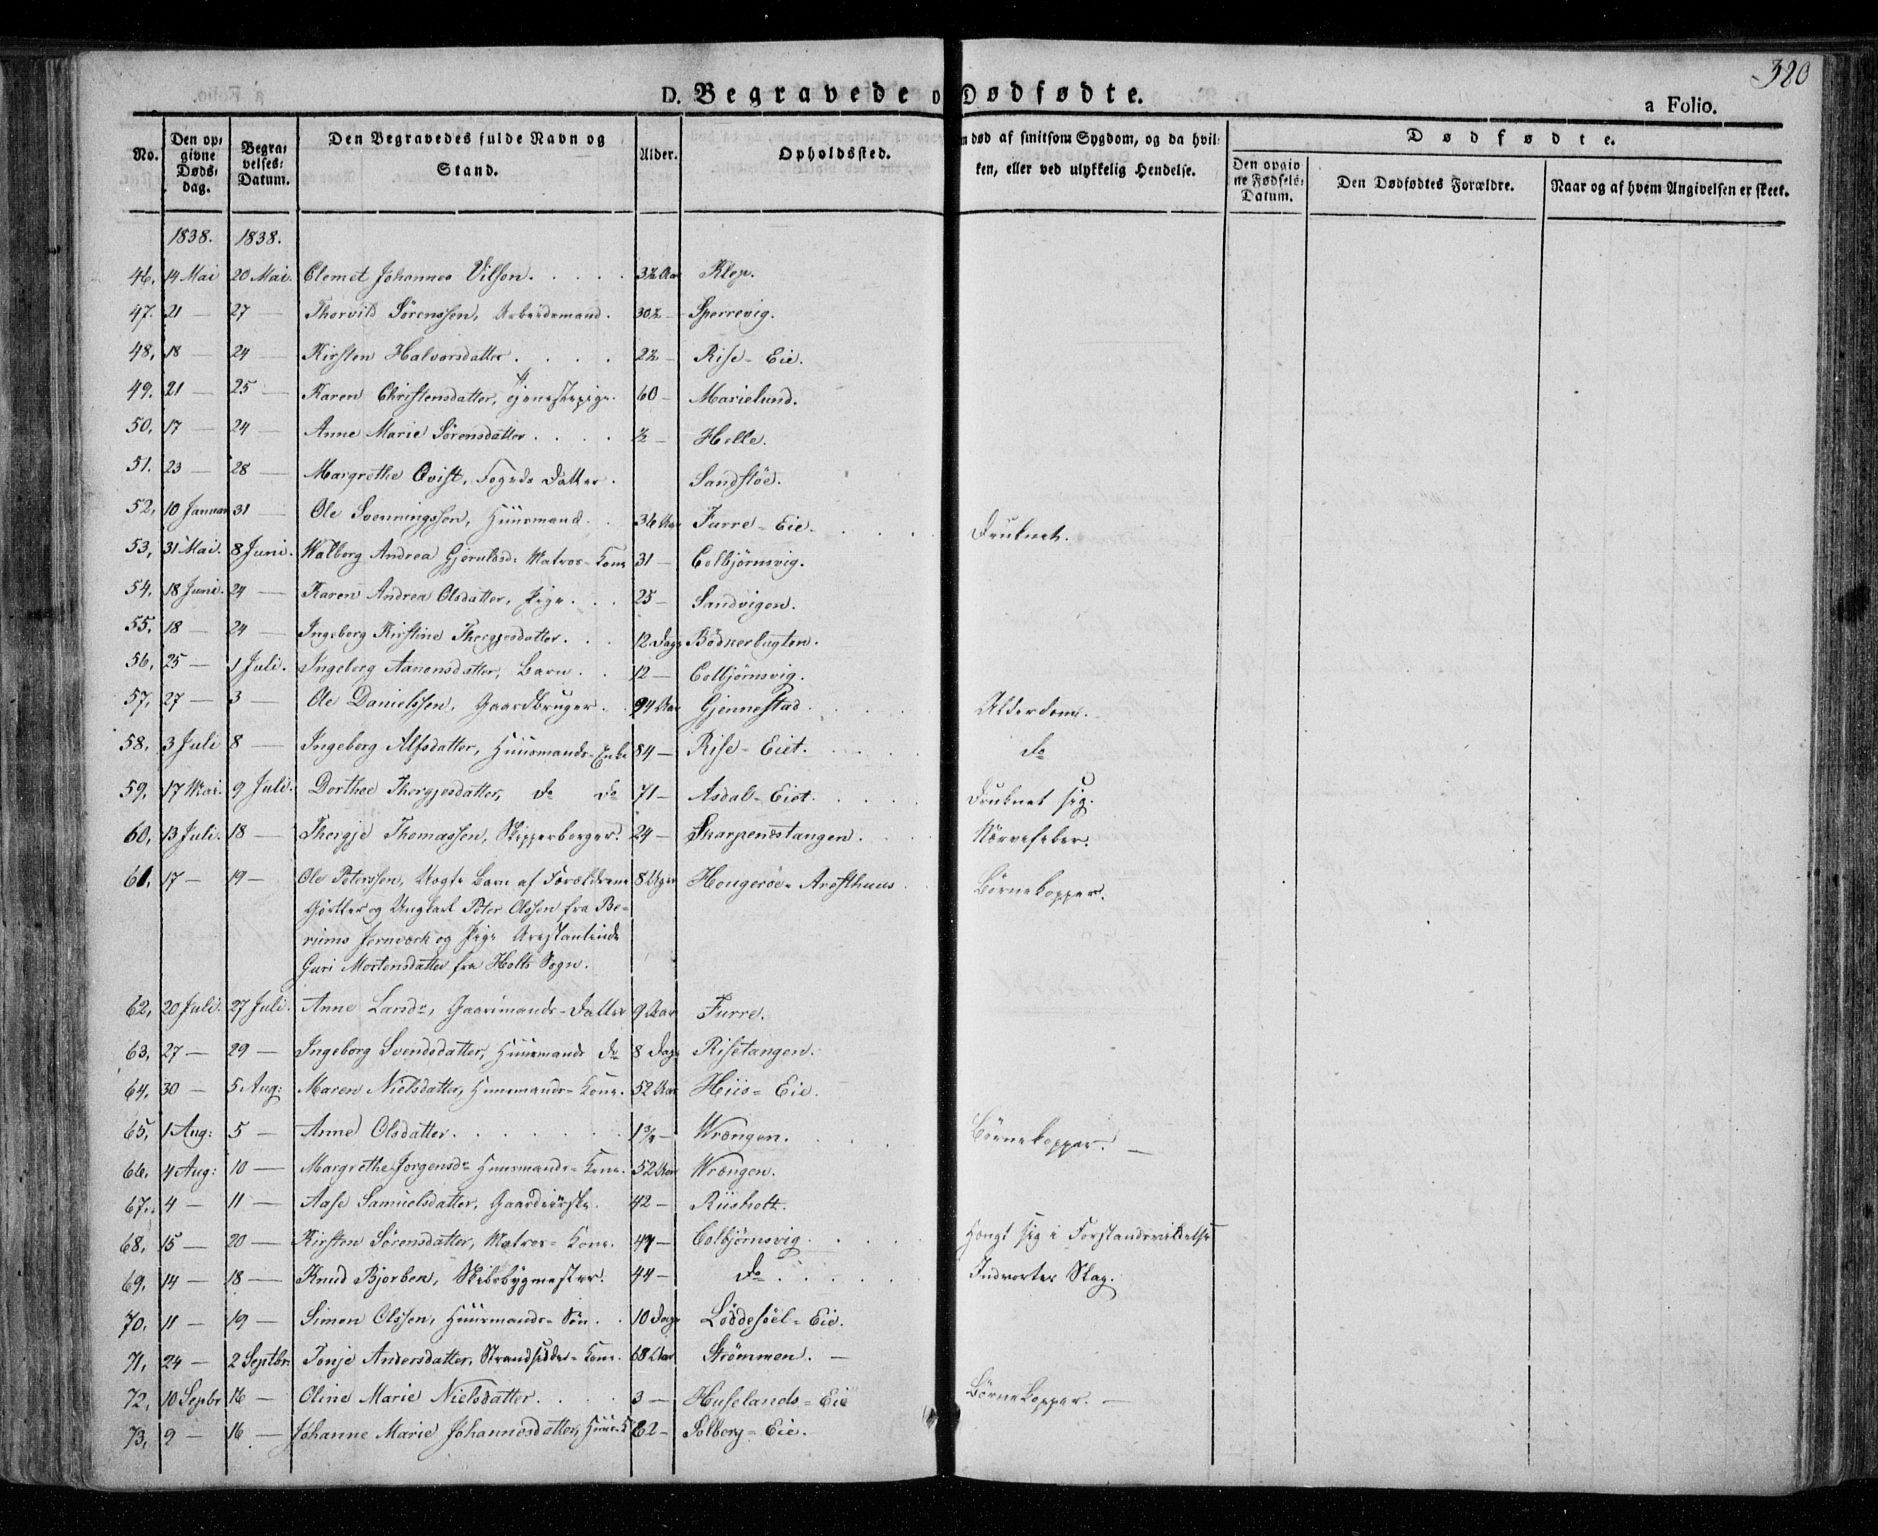 320
D. Begravede o Dødfødte.
a Folio.
No. Den opgivne Dødsdag. Begravelses-Datum. Den Begravedes fulde Navn og Stand. Alder. Opholdssted. n død af smitsom Sygdom, og da hvilken, eller ved ulykkelig Hendelse. Dødfødte.
Den opgivne Fødsels-Datum. Den Dødfødtes Forældre. Naar og af hvem Angivelsen er skeet.
1838. 1838.
46. 14 Mai 20 Mai. Clemet Johannes Vilson. 3½ Aar Klep.
47. 21 — 27 — Thorvild Sørenssen, Arbeidsmand. 30½ — Sperrevig.
48. 18 — 24 — Kirsten Halvorsdatter. 2½ — Rise-Eie.
49. 21 — 25 — Karen Christensdatter, Tjenestepige. 60 — Marielund.
50. 17 — 24 — Anne Marie Sørensdatter. ½ — Helle.
51. 23 — 28 — Margrethe Qvist, Fogeds Datter. Sandstøe.
52. 10 Januar 31 — Ole Svenningssen, Huusmand. 36 Aar Furre-Eie. Druknet.
53. 31 Mai. 8 Juni. Walborg Andrea Gjerulfsd: Matros-Kone 31 — Colbjørnsvig.
54. 18 Juni. 24 — Karen Andrea Olsdatter, Pige. 25 — Sandvigen.
55. 18 — 24 — Ingeborg Kirstine Thergjesdatter. 12 Dage Bødkerbugten.
56. 25 — 1 Juli. Ingeborg Aanonsdatter, Barn. 12 — Colbjørnsvig.
57. 27 — 3 — Ole Danielssen, Gaardbruger. 94 Aar Gjennestad. Alderdom.
58. 3 Juli 8 — Ingeborg Alfsdatter, Huusmands-Enke 84 — Rise-Eiet. do
59. 17 Mai. 9 Juli. Dorthee Thergjesdatter, do do 71 — Asdal-Eiet. Druknet sig.
60. 13 Juli. 18 — Thergje Thomassen, Skipperborger. 24 — Skarpenestangen. Nørvefeber.
61. 17 — 19 — Ole Peterssen, Uægte Barn af Forældrene 8 Uger Hougerøe-Aresthuus. Børnekopper.
Gørtler og Ungkarl Peter Olssen fra Be-
rums Jernværk og Pige Arestantinde
Guri Mortensdatter fra Holts Sogn.
62. 20 Juli. 27 Juli. Anne Larsdr, Gaardmands-Datter 9 Aar Furre.
63. 27 — 29 — Ingeborg Svendsdatter, Huusmands do 8 Dage Risetangen.
64. 30 — 5 Aug: Maren Nielsdatter, Huusmands-Kone. 52 Aar Hiis-Eie.
65. 1 Aug: 5 — Anne Olsdatter. 1¾ — Wrængen. Børnekopper. —
66. 4 Aug: 10 — Margrethe Jørgensdr Huusmands-Kone. 52 Aar Wrængen.
67. 4 — 11 — Aase Samuelsdatter, Gaardeierske. 42 — Riisholt.
68. 15 — 20 — Kirsten Sørensdatter, Matros-Kone. 47 — Colbjørnsvig. Hængt sig i Forstandsvildelse
69. 14 — 18 — Knud Bjorben, Skibsbygmester. 44 — do. Indvortes Slag.
70. 11 — 19 — Simon Olssen, Huusmands-Søn. 10 Dage Løddesøel-Eie.
71. 24 — 2 Septbr. Tonje Andersdatter, Strandsidder-Kone. 68 Aar Strømmen. —
72. 10 Septbr 16 — Oline Marie Nielsdatter. 3 — Huselands-Eie Børnekopper. —
73. 9 — 16 — Johanne Marie Johannesdatter, Huus-K 62 — Solberg-Eie.